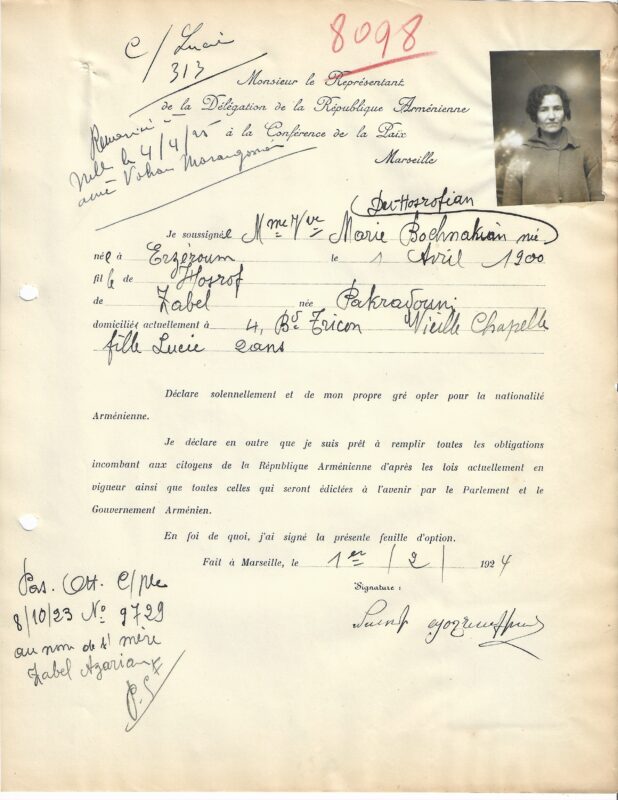 C/ Lucie
313
8098
Monsieur le Représentant
de la Délégation de la République Arménienne
à la Conférence de la Paix
Marseille
Remariée
le 4/4/25
avec Vahan
Der-Hosrofian
Je soussignée Mme Vve Marie Bochnakian née
née à Erzéroum le 1 Avril 1900
fille de Hosrof
de Zabel née Pakradouni
domiciliée actuellement à 4, Bd. Tricon Vieille Chapelle
fille Lucie 2 ans
Déclare solennellement et de mon propre gré opter pour la nationalité
Arménienne.
Je déclare en outre que je suis prêt à remplir toutes les obligations
incombant aux citoyens de la République Arménienne d'après les lois actuellement en
vigueur ainsi que toutes celles qui seront édictées à l'avenir par le Parlement et le
Gouvernement Arménien.
En foi de quoi, j'ai signé la présente feuille d'option.
Fait à Marseille, le 1er / 2 / 1924
Signature :
Pas. Ott. C/ple
8/10/23 No 9729
au nom de sa mère
Zabel Azarian
P.S